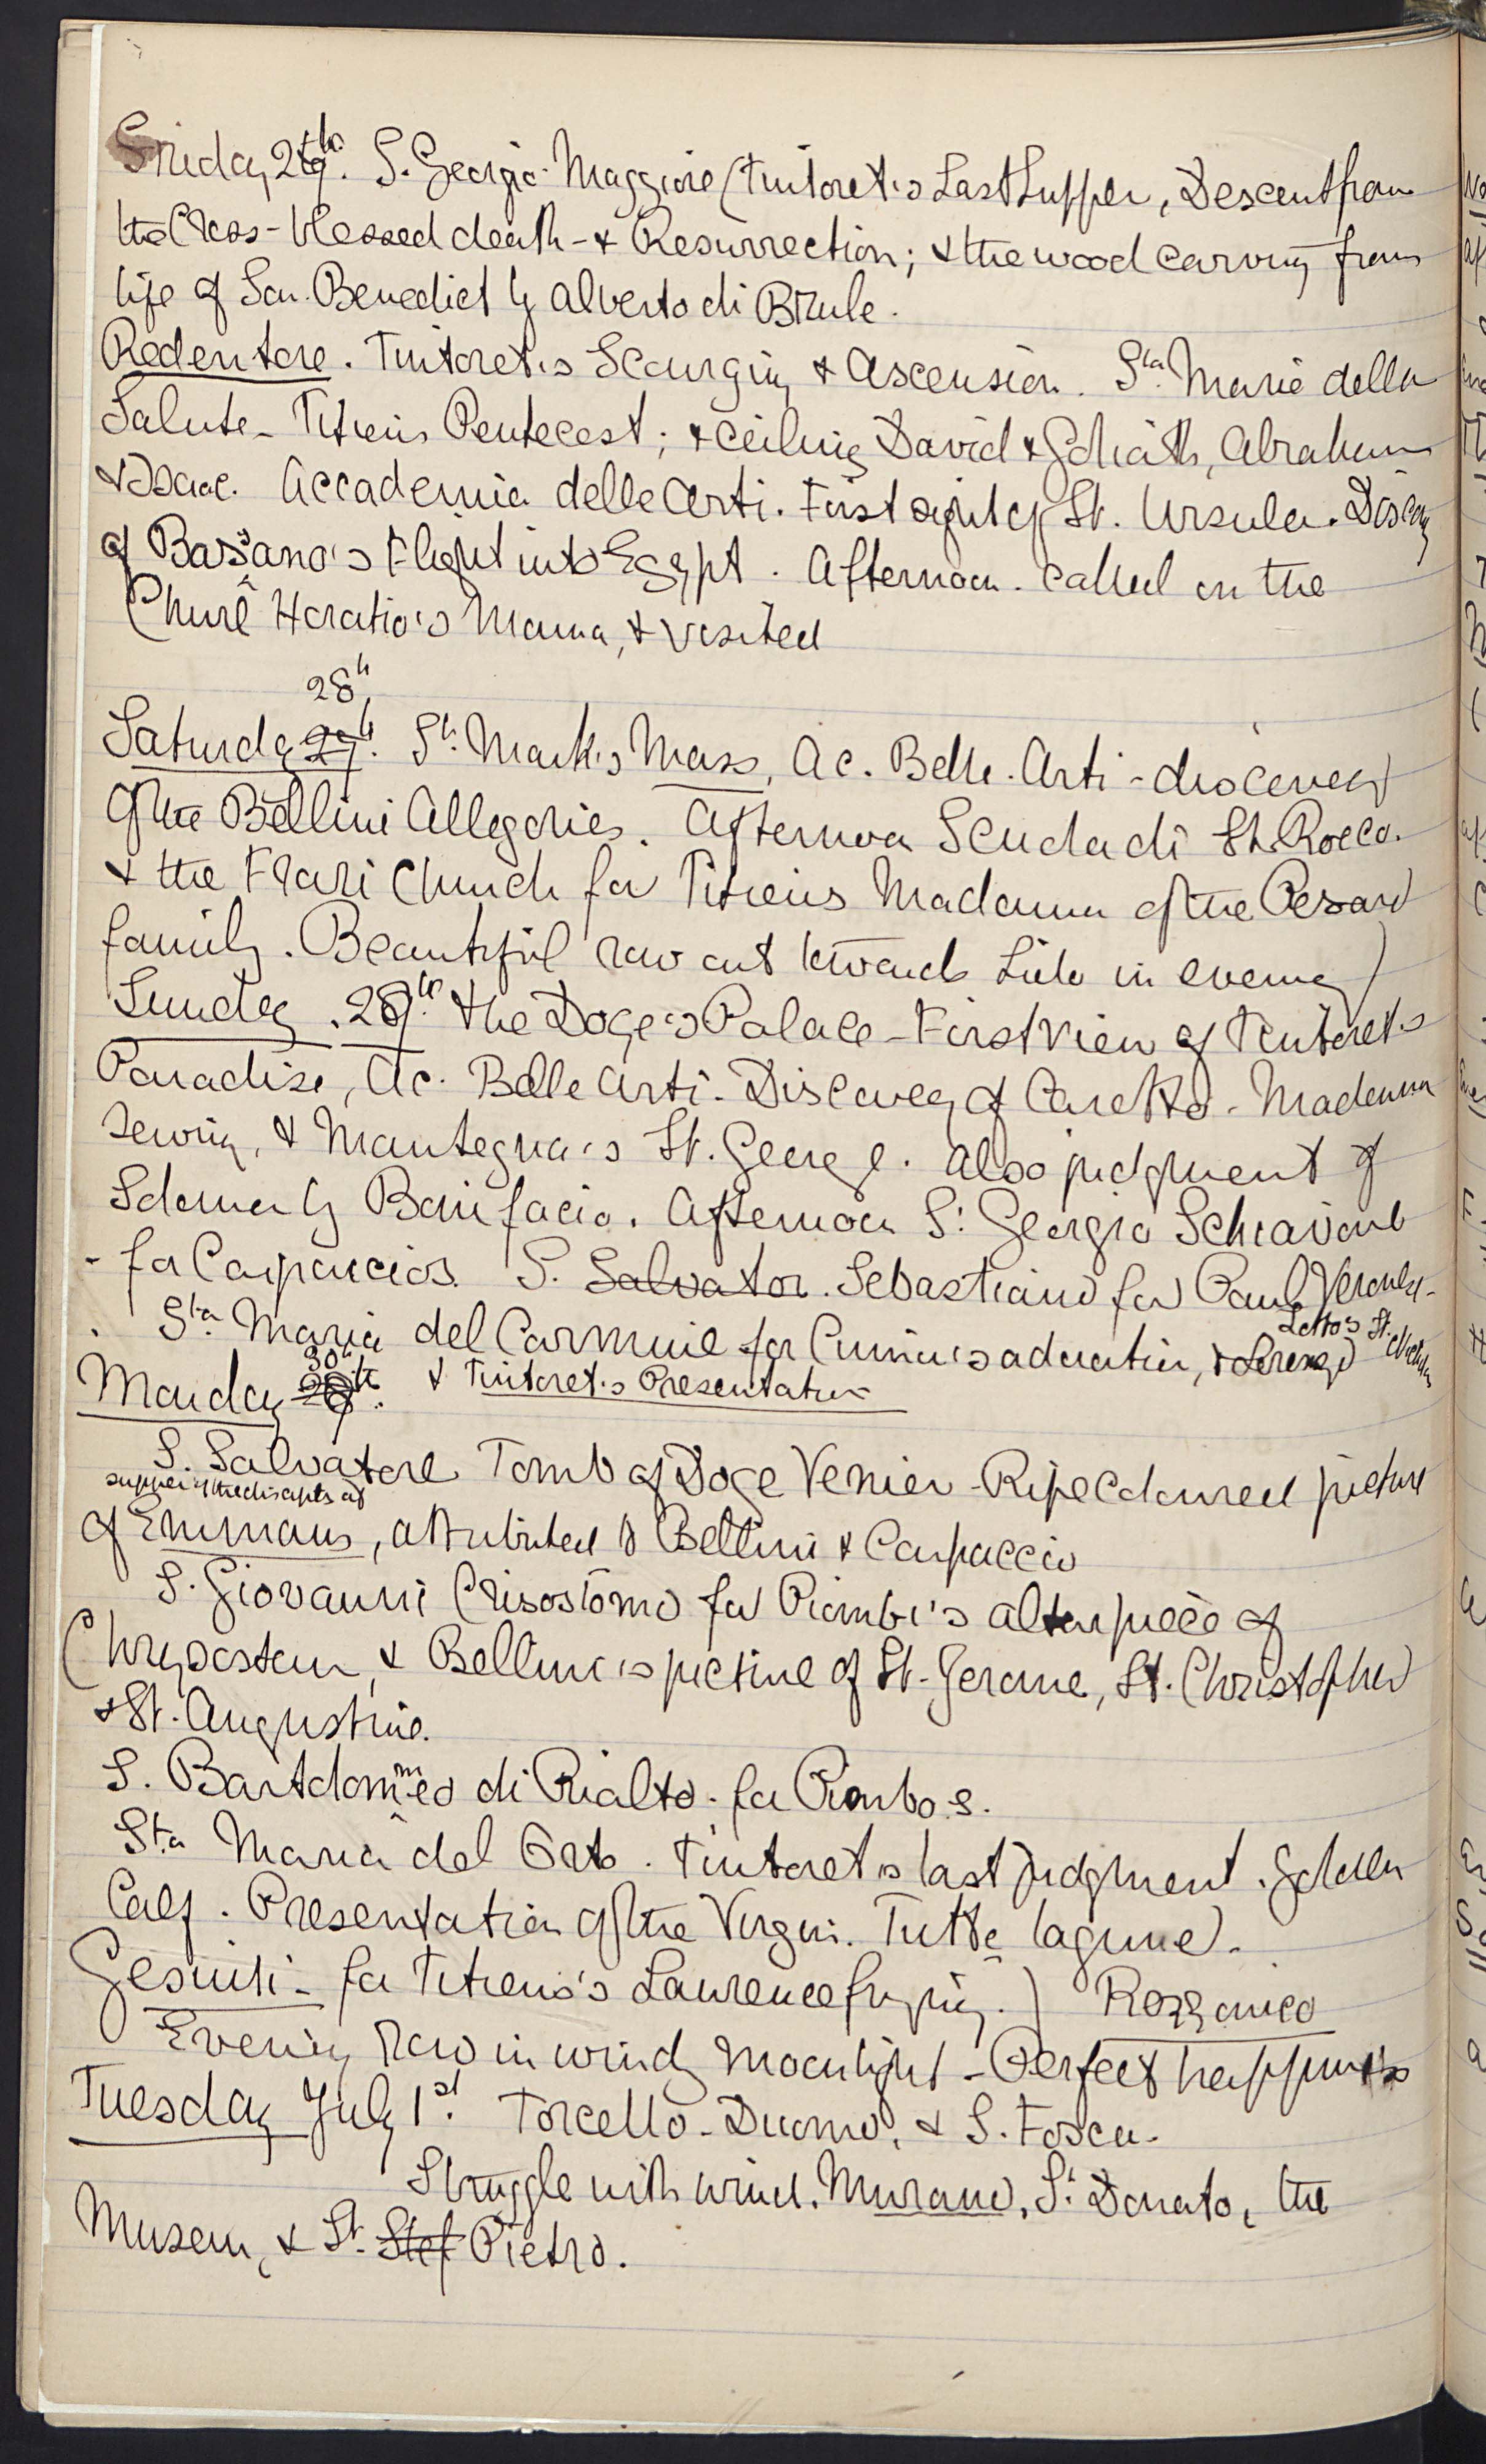 Friday, 27th. S. Georgio Maggiore (Tintoret's Last Supper, Descent from
the Cross - blessed death - & Resurrection; & the wood carving from
life of San. Benedict by Alberto di Brule.
Redentore. Tintoret's Scourging & Ascension. Sta. Maria della
Salute - Titian's Pentecost; & ceiling David & Goliath, Abraham
& Isaac. Accademia delle Arti. First sight of St. Ursula. Discovy
of Bassano's Flight into Egypt. Afternoon. called on the
Horatio's Mama, & visited
28th
Saturday 29th. St. Mark's Mass, Ac. Belle. Arti - discovery
of the Bellini Allegories. Afternoon Scuola di St. Rocco.
& the Frari Church for Titian's Madonna of the Pesaro
family. Beautiful row out towards Lido in evening)
Sunday. 29th. the Doge's Palace - First view of Tintoret's
Paradise, Ac. Belle Arti. Discovery of Caretto - Madonna
sewing, & Mantegna's St. George. Also judgment of
Solomon by Bonifacio. Afternoon S. Georgio Schiavone
- for Carpaccios. S. Salvator. Sebastiano for Paul Verones-
Sta. Maria del Carmine for Cima's adoration, & Lorenzo Lotto's St. Nicholas
Monday 30th 29th. & Tintoret's Presentation
S. Salvatore Tomb of Doge Venier - Ripe coloured picture
supper of the disciples at
of Emmaus, attributed to Bellini & Carpaccio
S. Giovanni Crisostomo for Piombo's altarpiece of
Chrysostom, & Bellini's picture of St. Jerome, St. Christopher
& St. Augustine.
S. Bartolommeo di Rialto - for Piombos.
Sta Maria del Orto. Tintoret's last judgment. Golden
Calf. Presentation of the Virgin. Tutte lagune).
Gesuiti - for Titian's Laurence frying.) Rezzonico
Evening row in windy moonlight - Perfect happiness
Tuesday July 1st. Torcello - Duomo, & S. Fosca.
Struggle with wind. Murano, S. Donato, the
Museum, & St. Stef Pietro.